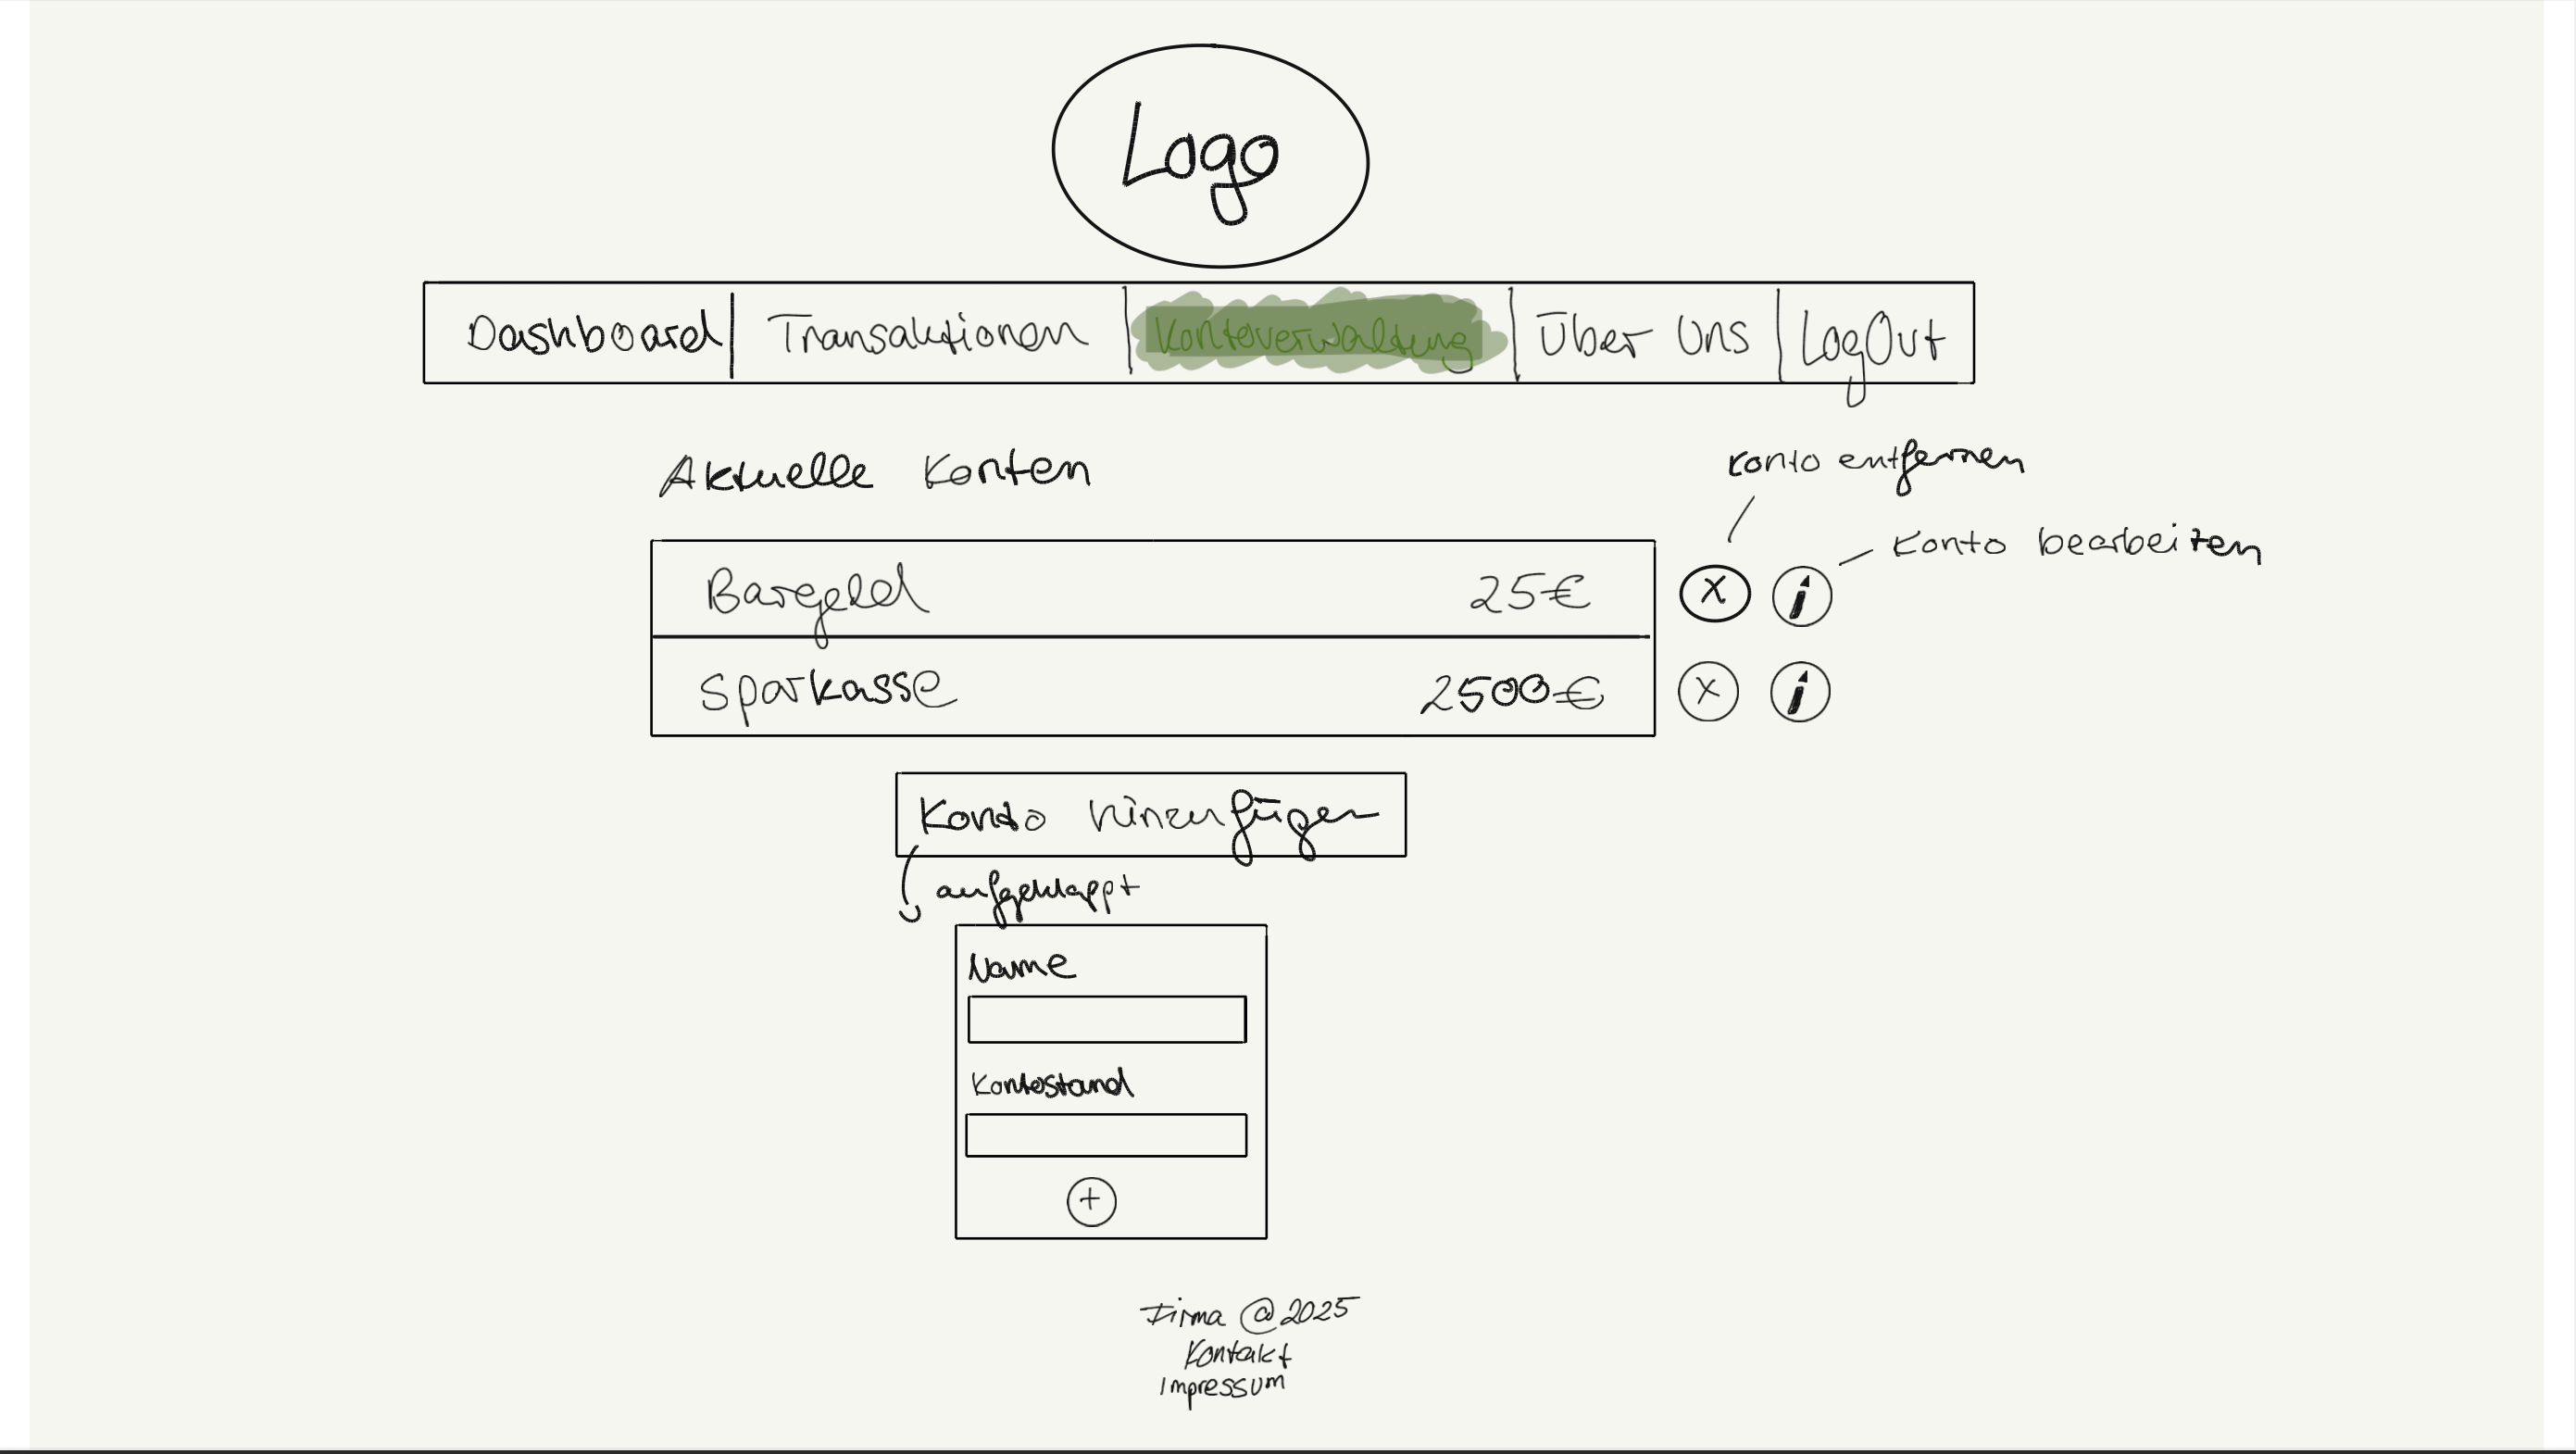 Logo
Dashboard Transaktionen Kontoverwaltung Über Uns LogOut
Aktuelle Konten
Konto entfernen
Konto bearbeiten
Bargeld 25€ x
Sparkasse 2500€ x
Konto hinzufügen
aufgeklappt
Name
Kontostand
+
Firma @2025
Kontakt
Impressum